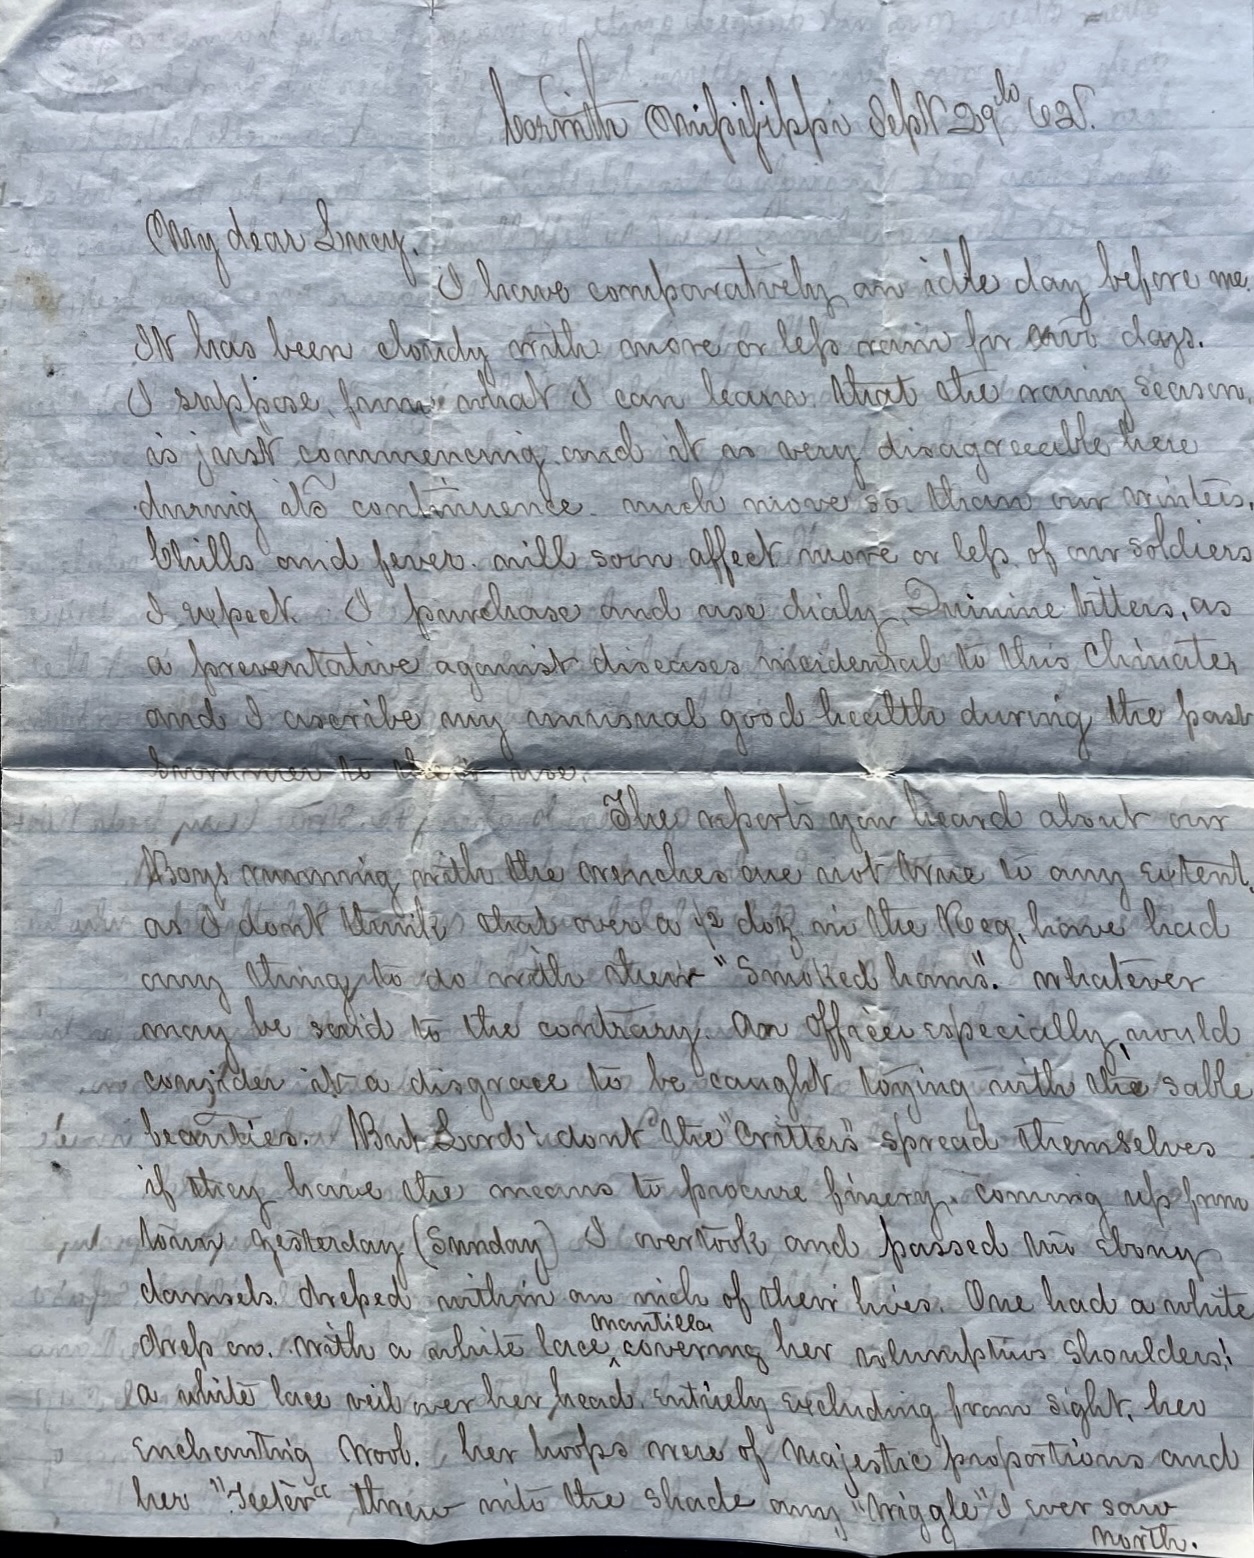 Corinth Mississippi Sept 29th 62.
My dear Lucy.
I have comparatively an idle day before me.
It has been cloudy with more or less rain for two days.
I suppose, from what I can learn, that the rainy season,
is just commencing and it is very disagreeable here
during its continuence. much more so than our winters.
Chills and fever. will soon affect more or less of our soldiers
I expect. I purchase and use dialy, Quinine bitters, as
a preventative against diseases incidental to this climate,
and I ascribe my unusual good health during the past
Summer to their use.
The reports you heard about our
Boys running with the wenches are not true to any extent,
as I dont think that over a ½ doz in the Reg, have had
any thing to do with their "Smoked hams". whatever
may be said to the contrary. An officer especially, would
consider it a disgrace to be caught toying with the sable
beauties. But Lord! dont the "Critters" spread themselves
if they have the means to procure finery. coming up from
town yesterday (Sunday) I overtook and passed two Ebony
damsels. dressed within an inch of their lives. One had a white
dress on. with a white lace mantilla covering her voluptius shoulders;
a white lace veil over her head, entirely excluding from sight, her
enchanting wool. her hoops were of majestic proportions and
her "Teeter" threw into the shade any "Wriggle" I ever saw
north.